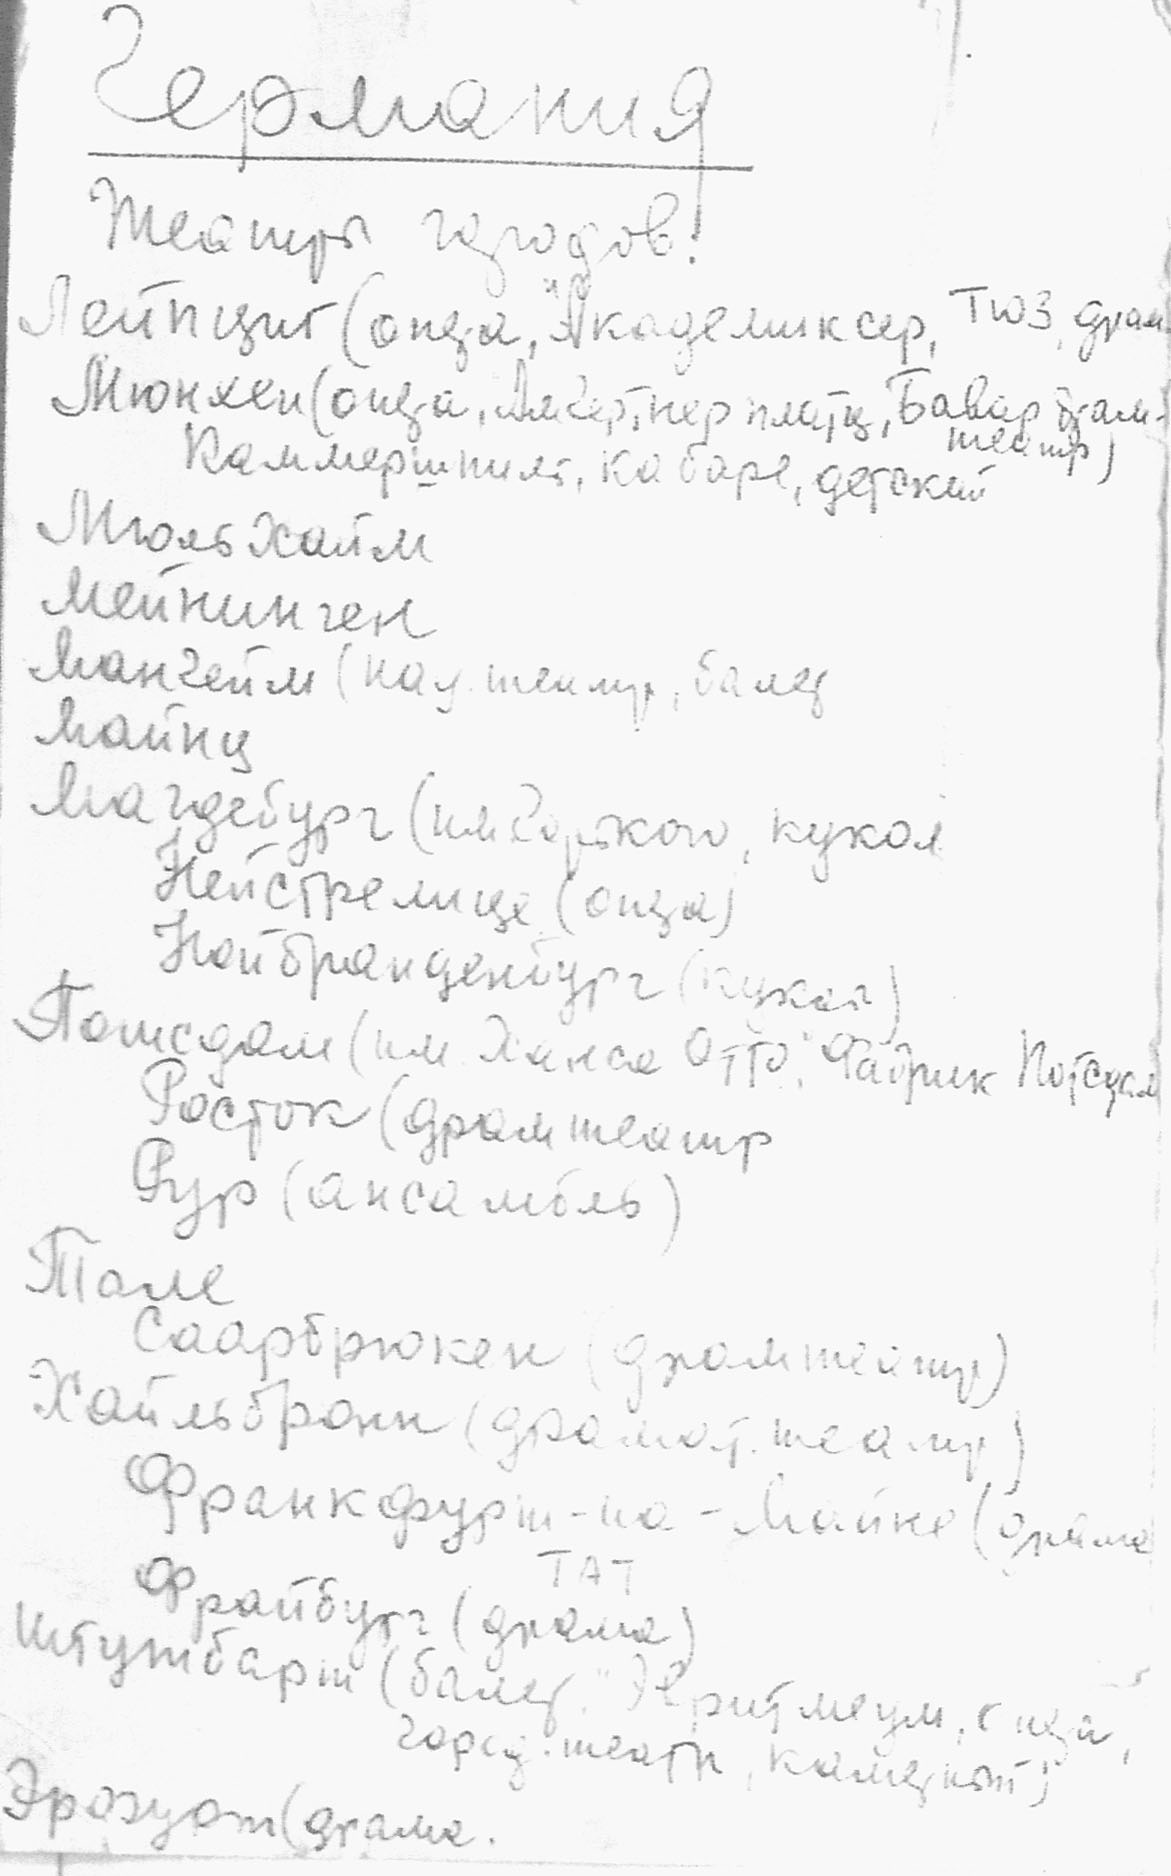 Германия
Театры городов:
Лейпциг (опера, "Академиксер, ТЮЗ, драм
Мюнхен (опера, Ам Гертнерплатц, Бавар драм-
театр)
Каммершпиле, кабаре, детский
Мюльхайм
Мейнинген
Мангейм (нац. театр, балет
Майнц
Магдебург (им Горького, кукол
Нейстрелице (опера)
Нойбранденбург (кукол)
Потсдам (им. Ханса Отто, "Фабрик Потсдам
Росток (драмтеатр
Рур (ансамбль)
Тале
Саарбрюкен (драмтеатр)
Хайльбронн (драмат. театр)
Франкфурт-на-Майне (драма
ТАТ
Фрайбург (драма)
Штутгарт (балет, опера,
город. театр, камерный)
(драма.